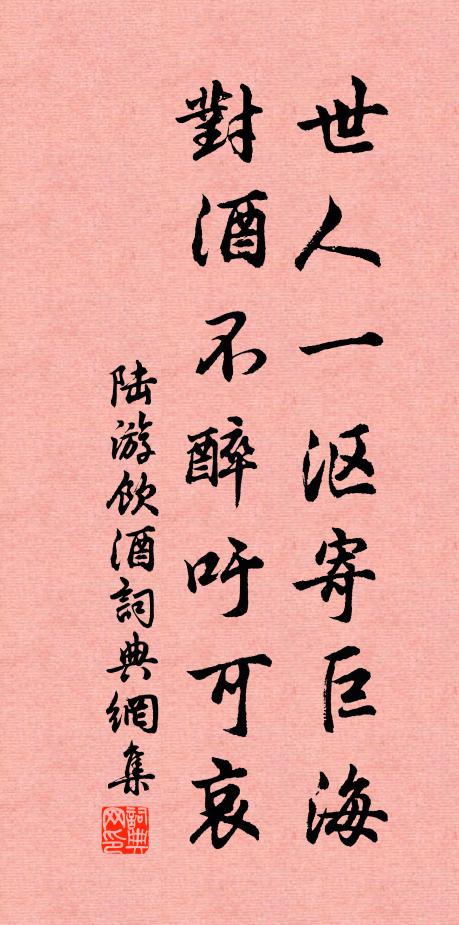 世人一沤寄巨海
對酒不醉吁可哀
陆游飲酒詞典網集
詞典网印